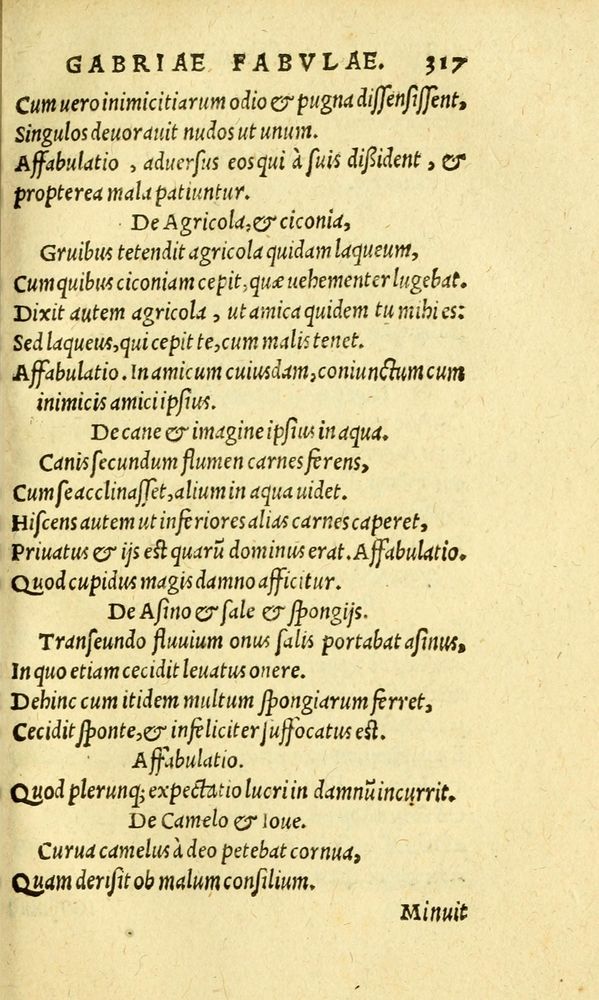 GABRIAE FABVLAE. 317
Cum uero inimicitiarum odio & pugna diſſenſiſſent,
Singulos deuorauit nudos ut unum.
Affabulatio , aduerſus eos qui à ſuis dißident , &
propterea mala patiuntur.
De Agricola, & ciconia,
Gruibus tetendit agricola quidam laqueum,
Cum quibus ciconiam cepit, quæ uehementer lugebat.
Dixit autem agricola , ut amica quidem tu mihi es:
Sed laqueus, qui cepit te, cum malis tenet.
Affabulatio. In amicum cuiusdam, coniunctum cum
inimicis amici ipſius.
De cane & imagine ipſius in aqua.
Canis ſecundum flumen carnes ferens,
Cum ſe acclinaſſet, alium in aqua uidet.
Hiſcens autem ut inferiores alias carnes caperet,
Priuatus & ijs eſt quarū dominus erat. Affabulatio.
Quod cupidus magis damno afficitur.
De Aſino & ſale & ſpongijs.
Tranſeundo fluuium onus ſalis portabat aſinus,
In quo etiam cecidit leuatus onere.
Dehinc cum itidem multum ſpongiarum ferret,
Cecidit ſponte, & infeliciter ſuffocatus eſt.
Affabulatio.
Quod plerunq; expectatio lucri in damnū incurrit.
De Camelo & Ioue.
Curua camelus à deo petebat cornua,
Quam deriſit ob malum conſilium.
Minuit